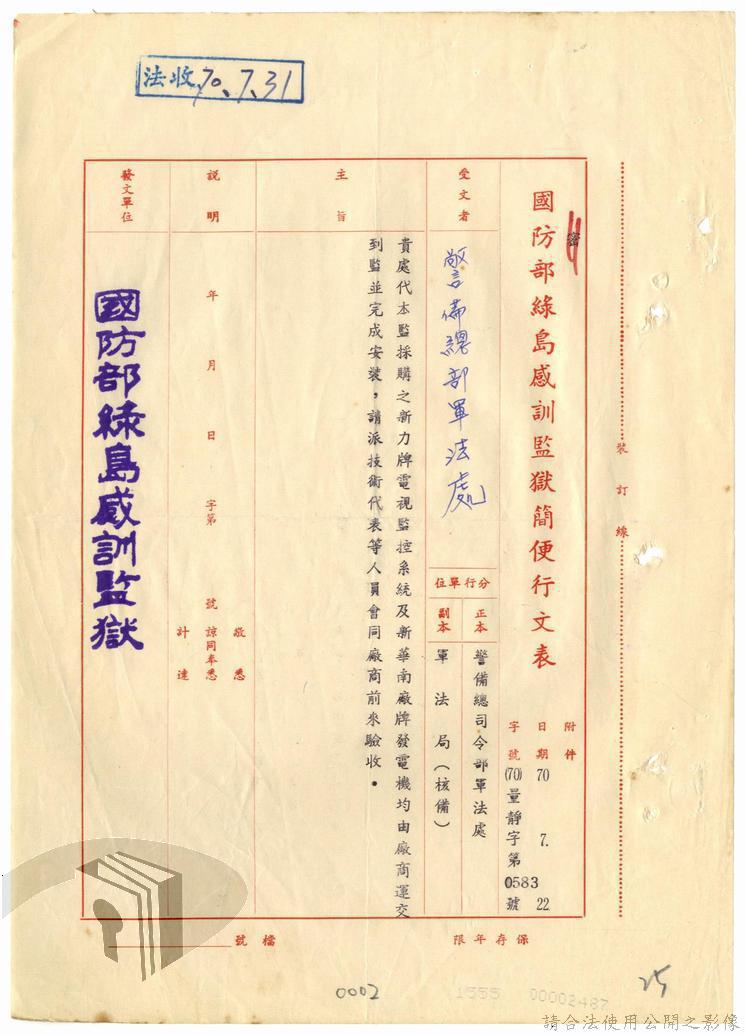 法收 70.7.31
裝訂線
密
國防部綠島感訓監獄簡便行文表
附件
日期 70 7. 22
字號 (70)量靜字第0583號
受文者
警備總部軍法處
分行單位
正本
警備總司令部軍法處
副本
軍法局(核備)
主旨
貴處代本監採購之新力牌電視監控系統及新華南廠牌發電機均由廠商運交
到監並完成安裝,請派技術代表等人員會同廠商前來驗收。
說明
敬悉
年 月 日 字第 號諒同奉悉
計達
發文單位
國防部綠島感訓監獄
保存年限
檔號
0002
1555 00002487
25
請合法使用公開之影像